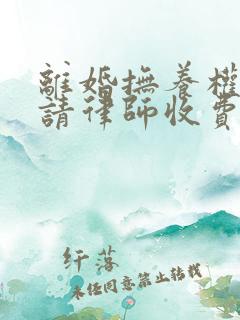 離婚撫養權
請律師收費
纤落
未经同意禁止转载